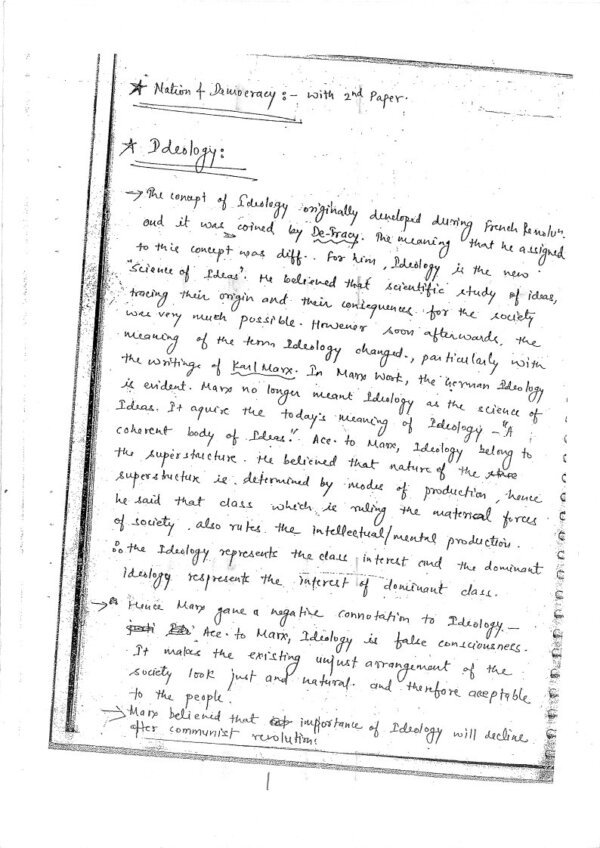 ★ Nation & Democracy :- With 2nd Paper.
★ Ideology :
→ The concept of Ideology originally developed during French Revoluⁿ.
and it was coined by De-Tracy. The meaning that he assigned
to this concept was diff.. For him, Ideology is the new
"Science of Ideas". He believed that scientific study of ideas,
tracing their origin and their consequences for the society
was very much possible. However soon afterwards, the
meaning of the term Ideology changed., particularly with
the writings of Karl Marx. In Marx Work, the German Ideology
is evident. Marx no longer meant Ideology as the science of
Ideas. It aquire the today's meaning of Ideology - "A
coherent body of Ideas." Acc. to Marx, Ideology belong to
the superstructure. He believed that nature of the
superstuctux is determined by modes of production, hence
he said that class which is ruling the material forces
of society, also rules the intellectual/mental production.
∴ the Ideology represents the class interest and the dominant
ideology respresents the interest of dominant class.
→ Hence Marx gave a negative connotation to Ideology -
Acc. to Marx, Ideology is false consciousness.
It makes the existing unjust arrangement of the
society look just and natural. and therefore acceptable
to the people.
→ Marx believed that importance of Ideology will decline
after communist revolution.
1